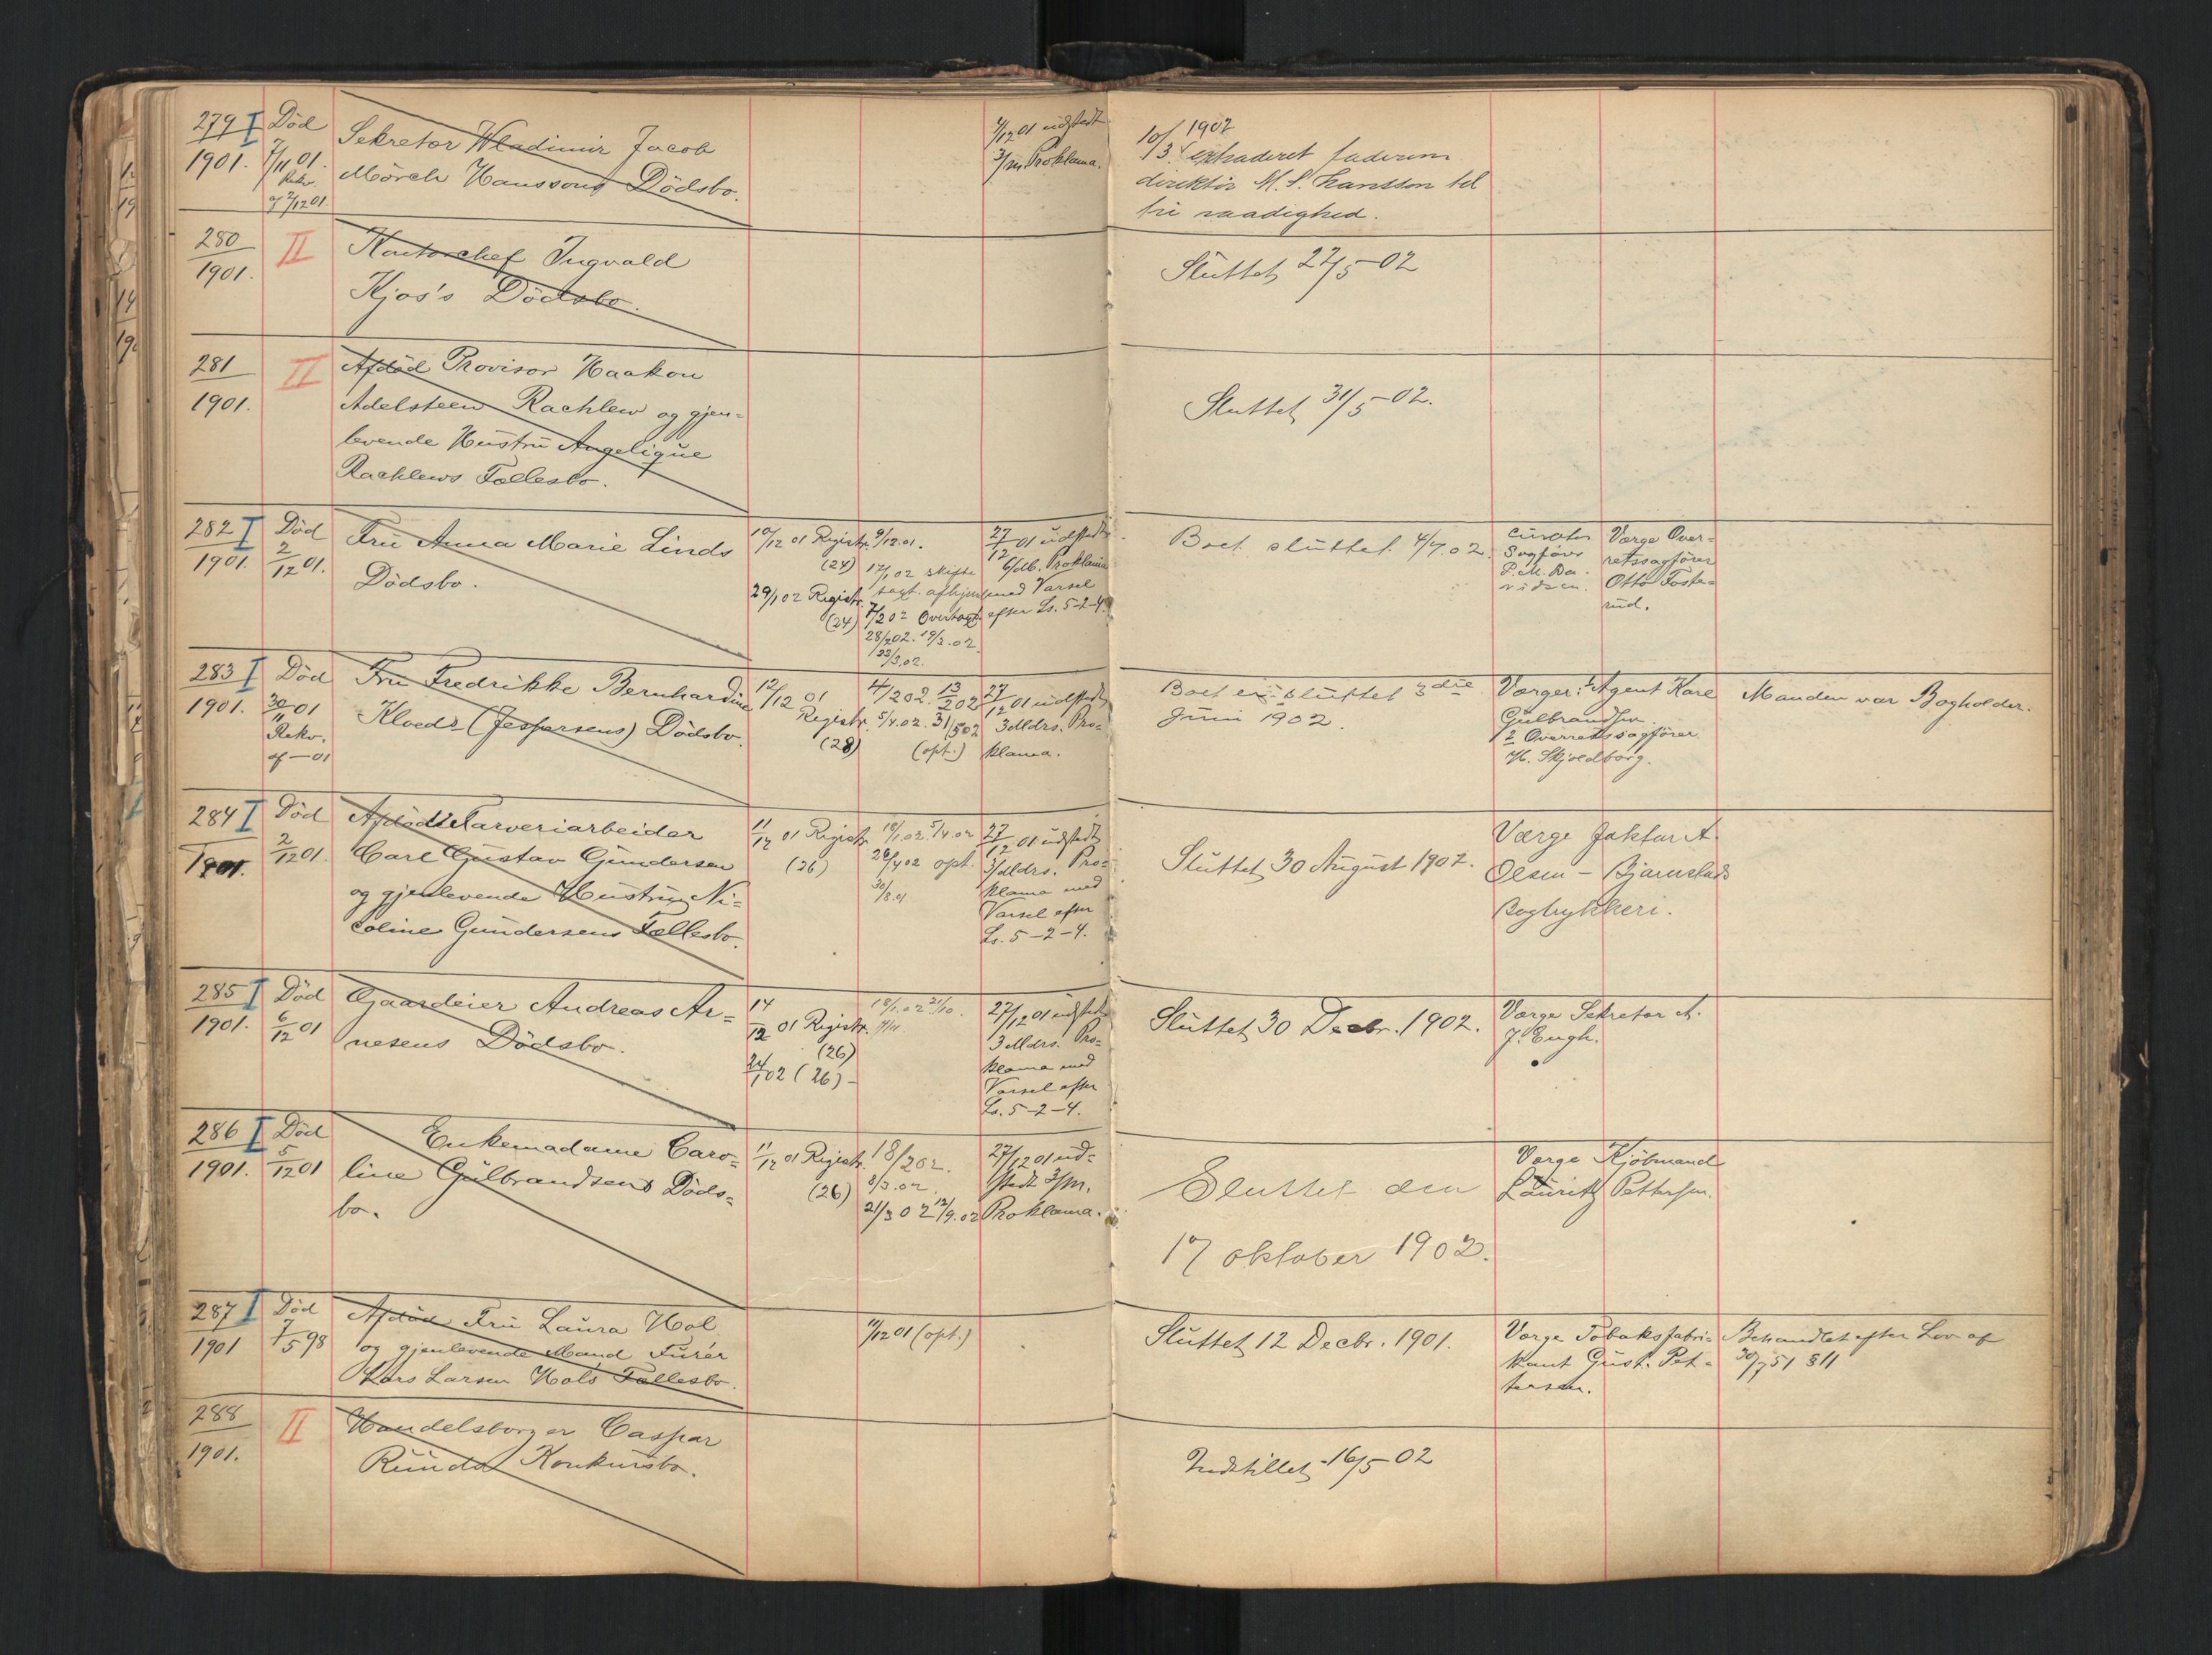 279 I Død Sekretær Wladimir Jacob
1901. 7/11 01. Mörch Hanssons Dödsbo.
Rekv.
af 2/12 01
4/12 01 udstedt
3/m. Proklama.
10/3 1902
extraderet faderen
direktör M. S. Hansson til
fri raadighed.
280 II Kontorchef Ingvald
1901. Kjos's Dödsbo.
Sluttet 27/5 02
281 II Afdöd Provisor Haakon
1901. Adelsteen Rachlew og gjen-
levende Hustru Angelique
Rachlews Fællesbo.
Sluttet 31/5 02.
282 I Död Fru Anna Marie Linds
1901. 2/12 01. Dödsbo.
10/12 01 Registr. (24)
29/1 02 Registr. (24)
9/12.01.
17/1 02 skifte
sagt. afhjem
7/2 02 Overtagt
28/2 02. 19/3.02.
22/3.02.
27/12 01 udstedt
6/db. Proklama
med Varsel
efter Ls. 5-2-4.
Boet sluttet 4/7.02.
Curator
Sagförer
P. M. Da-
vidsen.
Værge Over-
retssagförer
Otto Foste-
rud.
283 I Död Fru Fredrikke Bernhardine
1901. 30/11 01 Kloeds (Jespersens) Dödsbo.
Rekv.
af — 01
12/12 01
Registr.
(28)
4/2 02. 13/2 02
5/4.02. 31/5 02
(opt.)
27/12 01 udstedt
3 Mdrs. Pro-
klama.
Boet er sluttet 3die
Juni 1902.
Værger: 1 Agent Kare
Gulbrandsen.
2 Overretssagförer
H. Skjoldborg.
Manden var Bogholder.
284 I Död Afdöde Farveriarbeider
1901. 2/12 01. Carl Gustav Gundersen
og gjenlevende Hustru Ni-
coline Gundersens Fællesbo.
11/12 01 Registr.
(26)
18/1.02. 5/4.02
26/4 02 opt.
30/8.01
27/12 01 udstedt
3/Mdrs. Pro-
klama med
Varsel efter
Ls. 5-2-4.
Sluttet 30 August 1902.
Værge Faktor A.
Olsen - Bjørnstads
Bogtrykkeri.
285 I Död Gaardeier Andreas Ar-
1901. 6/12 01 nesens Dödsbo.
14/12 01 Registr.
(26)
24/1 02 (26) -
18/1.02 21/10.
27/12 01 udstedt
3 Mdrs. Pro-
klama med
Varsel efter
Ls. 5-2-4.
Sluttet 30 Decbr. 1902.
Værge Sekretær A.
J. Engh.
286 I Död Enkemadame Caro-
1901. 5/12 01 line Gulbrandsens Döds-
bo.
11/12 01 Registr.
(26)
18/2 02.
8/3.02
21/3 02 12/9.02
27/12 01 ud-
stedt 3/m.
Proklama.
Sluttet den
17 oktober 1902.
Værge Kjöbmand
Lauritz Pettersen.
287 I Död Afdöde Fru Laura Hol
1901 7/5 98 og gjenlevende Mand Furér
Lars Larsen Hols Fællesbo.
11/12 01 (opt.)
Sluttet 12 Decbr. 1901.
Værge Tobaksfabri-
kant Gust. Pet-
tersen.
Behandlet efter Lov af
30/7 51 § 11
288 II Handelsborger Caspar
1901. Runds Konkursbo.
Indstillet 16/5 02